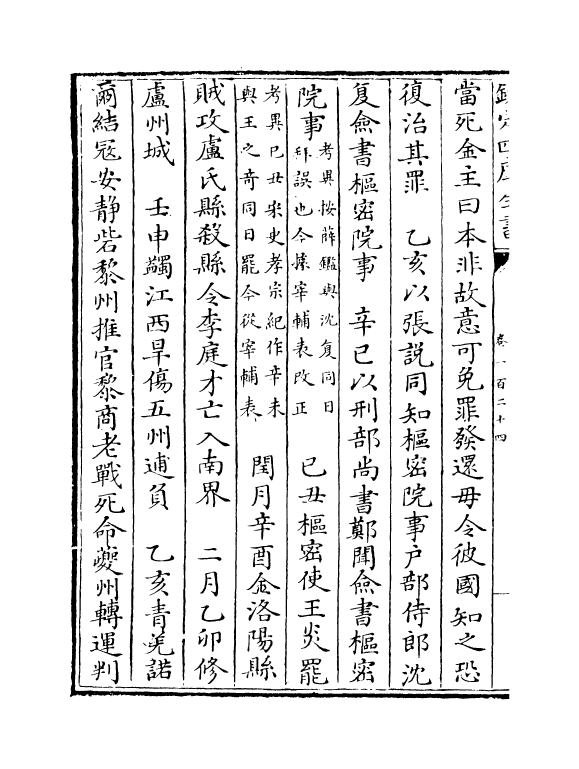 欽定四庫全書
卷一百二十四
當死金主曰本非故意可免罪發還毋令彼國知之恐
復治其罪　乙亥以張說同知樞密院事户部侍郎沈
夐僉書樞密院事　辛巳以刑部尚書鄭聞僉書樞密
院事
考異按薛鑑與沈夐同日
拜誤也今據宰輔表改正
己丑樞密使王炎罷
考異己丑宋史孝宗紀作辛未
與王之奇同日罷今從宰輔表
閏月辛酉金洛陽縣
賊攻盧氏縣殺縣令李庭才亡入南界　二月乙卯修
盧州城　壬申蠲江西旱傷五州逋負　乙亥青羌諾
爾結冦安靜砦黎州推官黎商老戰死命夔州轉運判